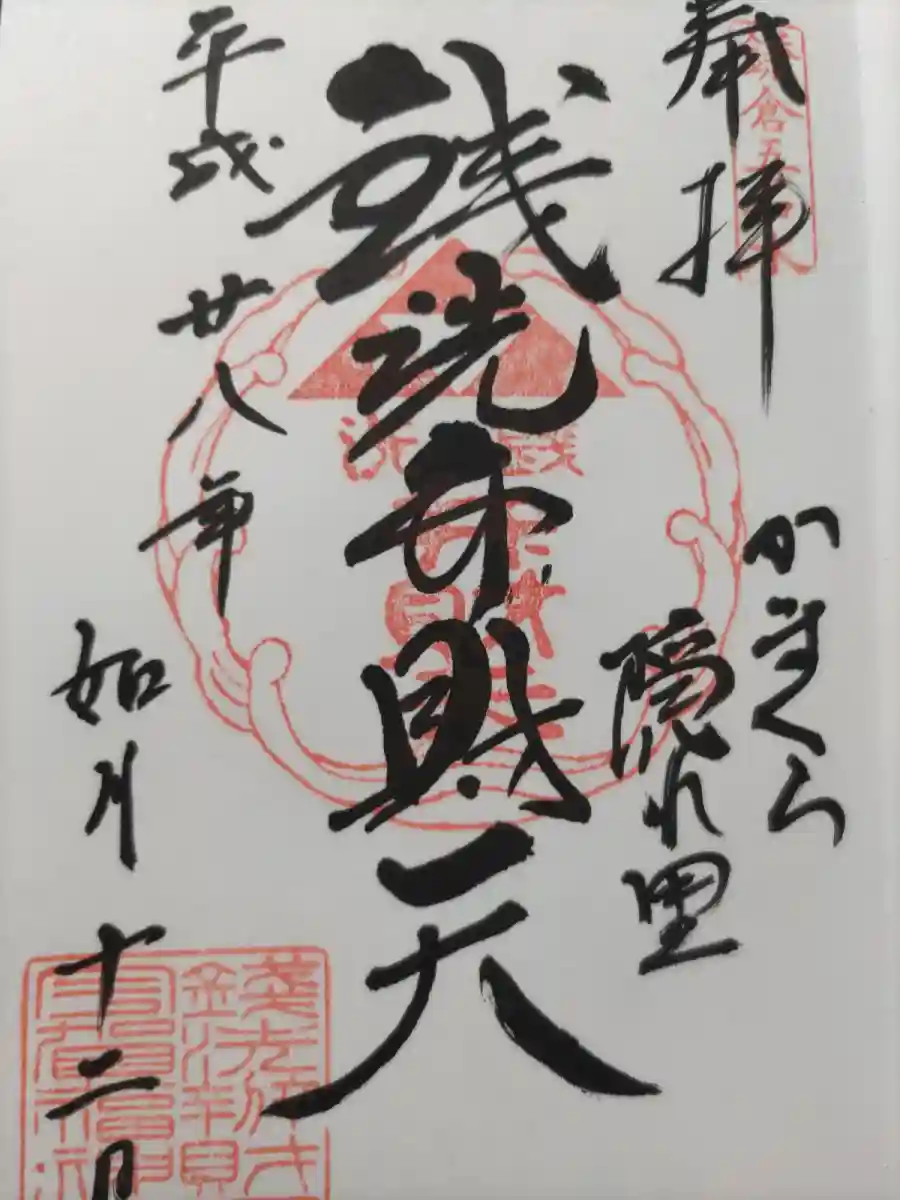 奉拝
鎌倉五名水
かまくら
隠れ里
銭洗弁財天
銭洗
平成廿八年
如月十二日